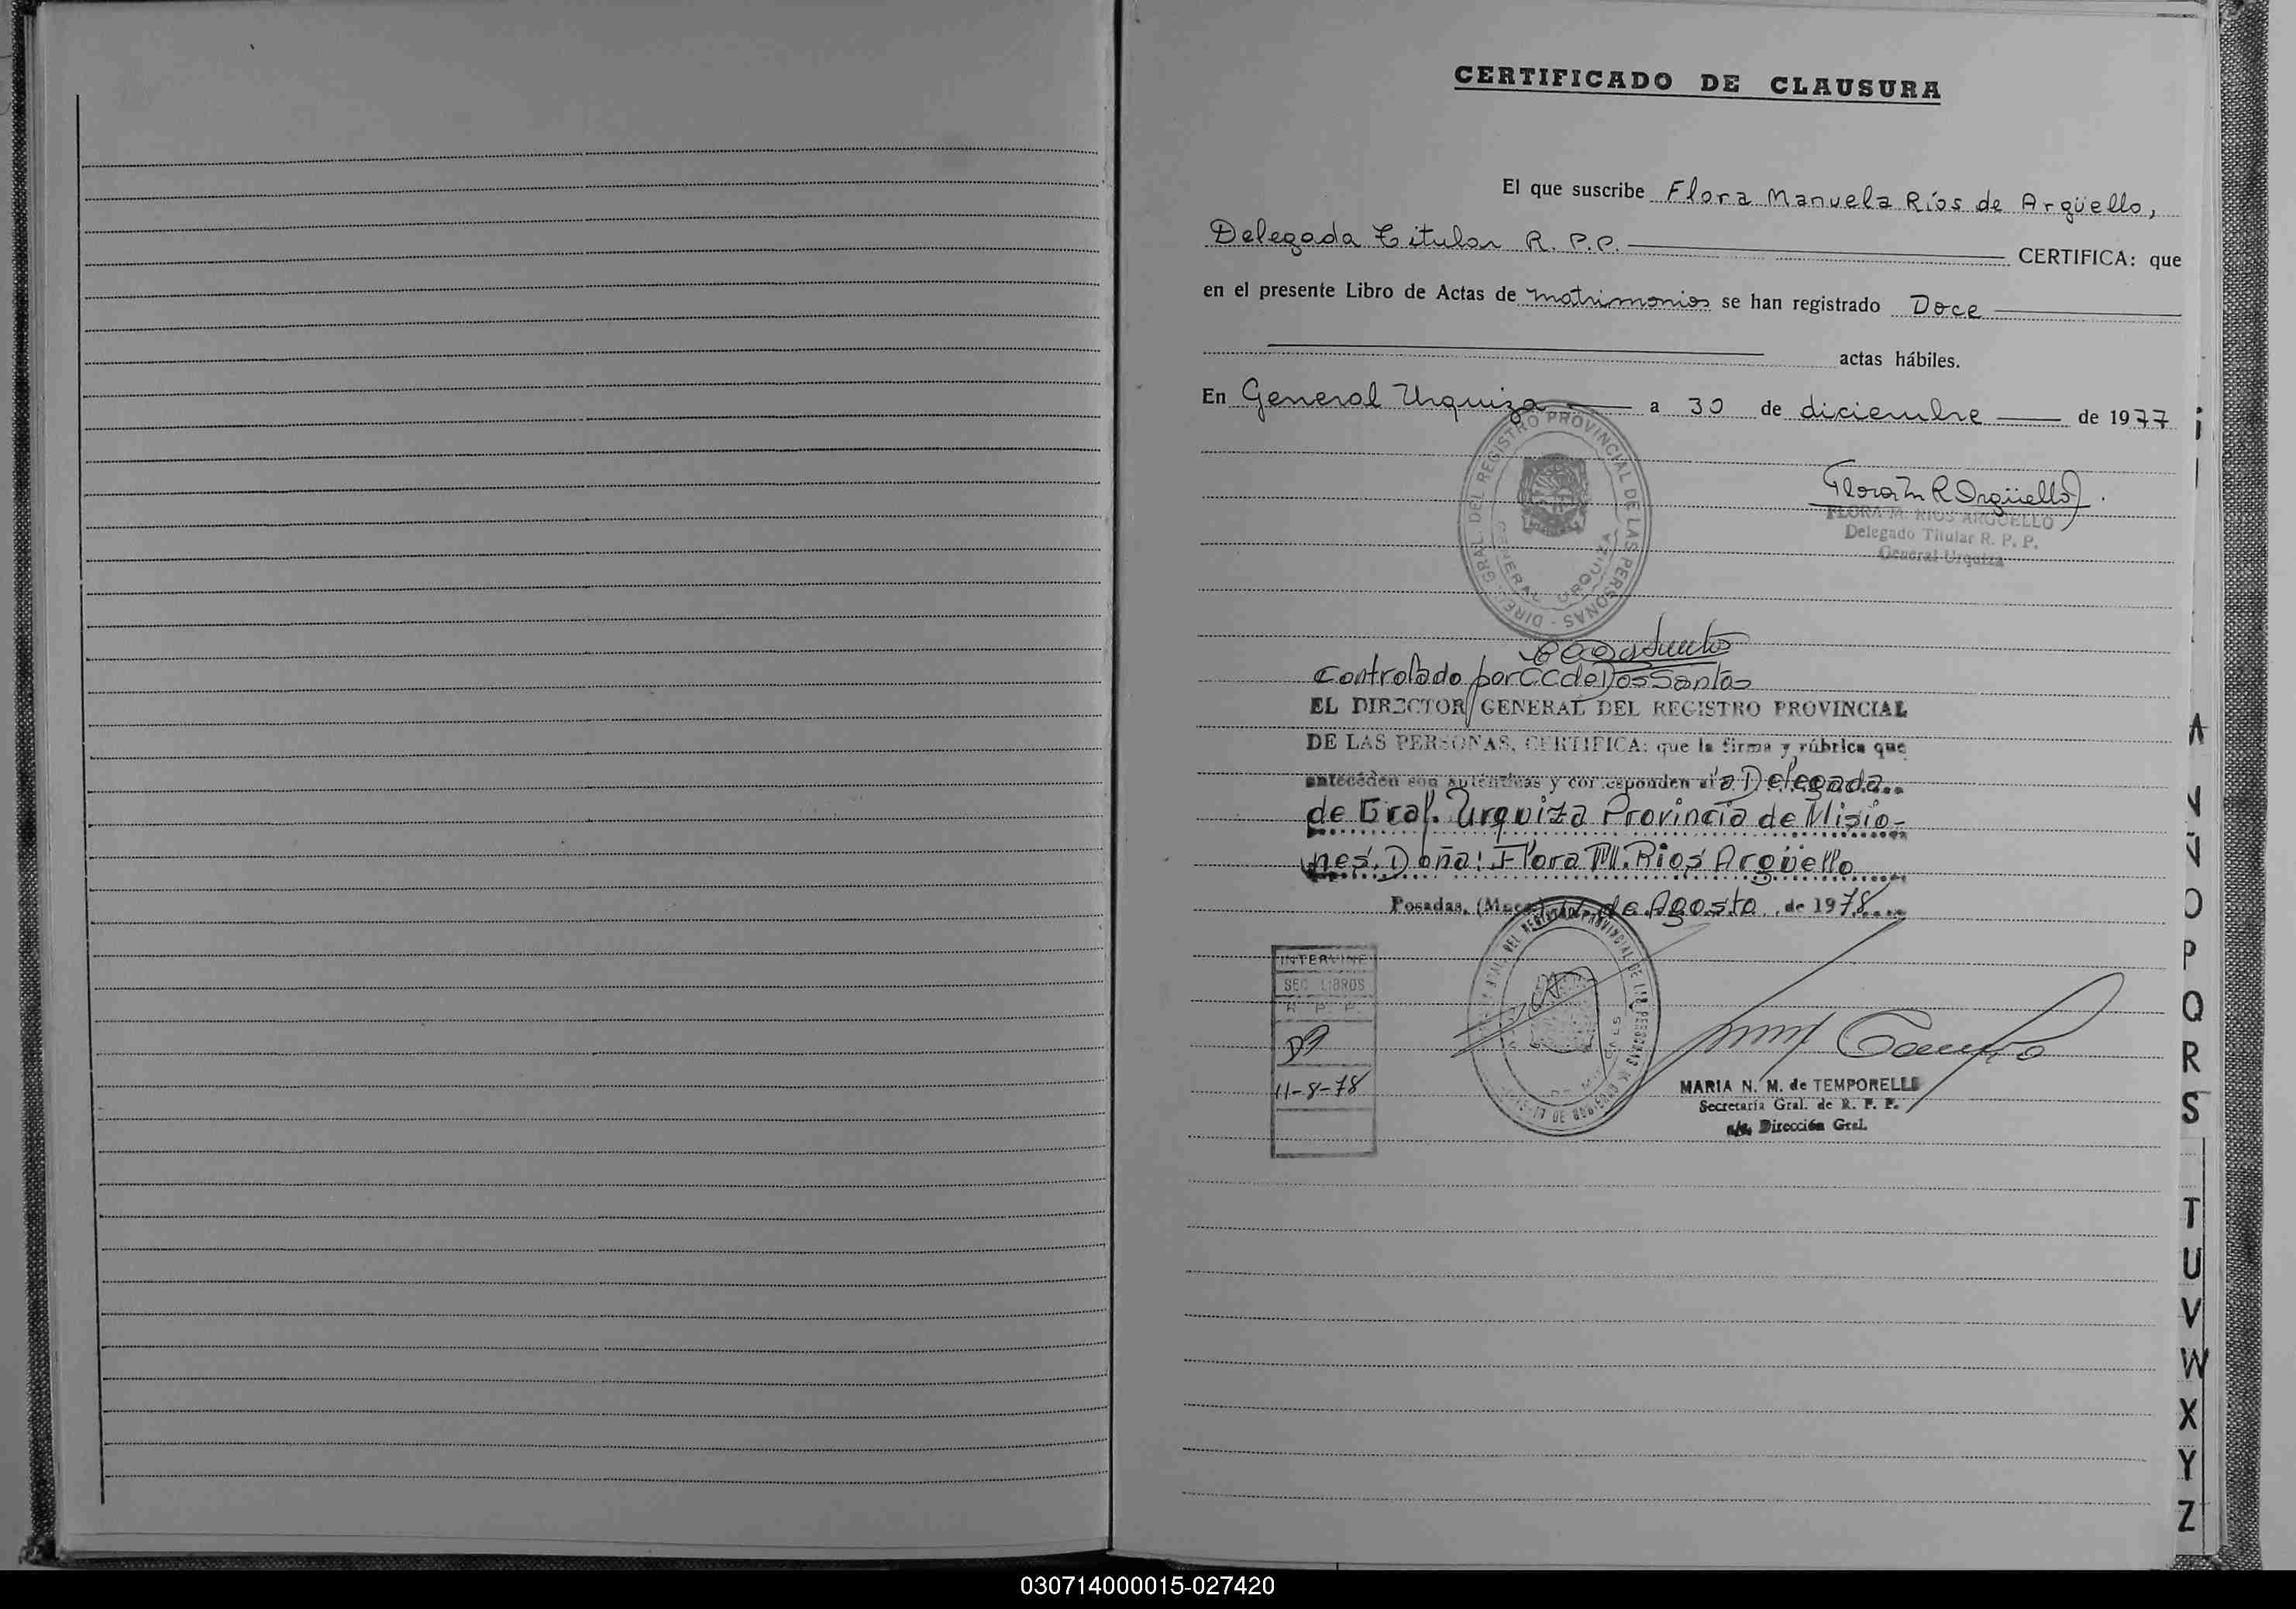 CERTIFICADO DE CLAUSURA
El que suscribe Flora Manuela Ríos de Argüello,
Delegada Titular R. P.P. CERTIFICA: que
en el presente Libro de Actas de matrimonios se han registrado Doce
actas hábiles.
En General Urquiza a 30 de diciembre de 1977
DIRE. GRAL. DEL REGISTRO PROVINCIAL DE LAS PERSONAS
GENERAL URQUIZA
Flora M R Argüello
FLORA M. RIOS ARGUELLO
Delegado Titular R. P. P.
General Urquiza
Controlado por C C de Dos Santos
EL DIRECTOR GENERAL DEL REGISTRO PROVINCIAL
DE LAS PERSONAS, CERTIFICA: que la firma y rúbrica que
anteceden son auténticas y corresponden a la Delegada
de Gral. Urquiza Provincia de Misio-
nes. Doña: Flora M. Rios Argüello
Posadas, de Agosto de 1978
INTERVINE
SEC. LIBROS
R. P. P.
11-8-78
MARIA N. M. de TEMPORELLI
Secretaria Gral. de R. P. P.
a/c. Dirección Gral.
A
N
Ñ
O
P
Q
R
S
T
U
V
W
X
Y
Z
030714000015-027420